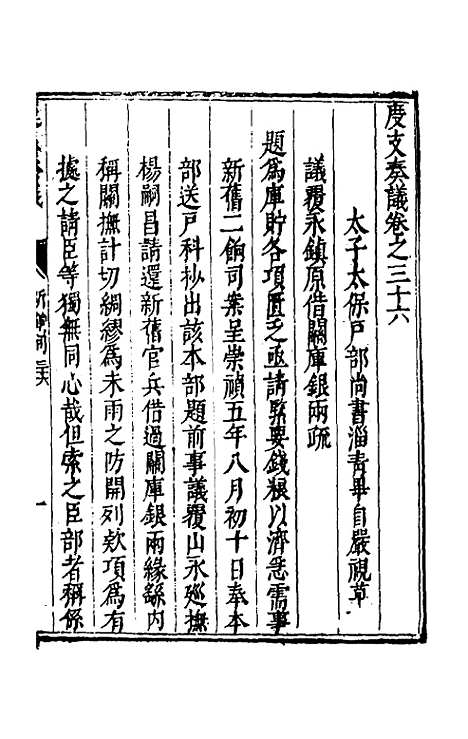 度支奏議卷之三十六
太子太保戶部尚書淄青畢自嚴視草
議覆永鎮原借關庫銀兩疏
題為庫貯各項匱乏亟請緊要錢糧以濟急需事
新舊二餉司案呈崇禎五年八月初十日奉本
部送戶科抄出該本部題前事議覆山永廵撫
楊嗣昌請還新舊官兵借過關庫銀兩緣繇內
稱關撫計切綢繆為未雨之防開列欵項為有
據之請臣等獨無同心哉但索之臣部者稱係
新餉司
一